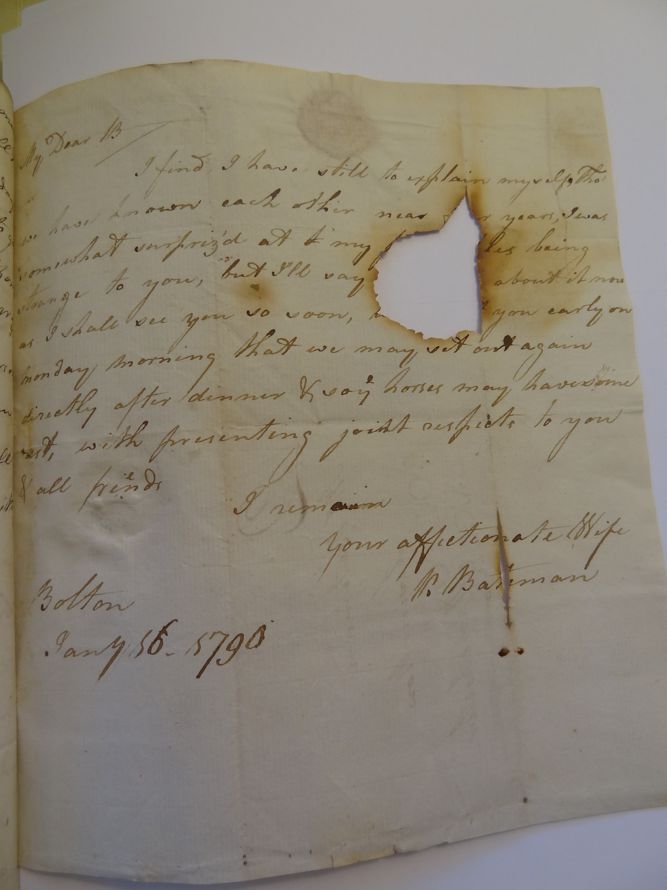 My Dear B
I find I have still to explain myself, Tho
we have known each other near years, I was
somewhat surpriz'd at my being
strange to you, but I'll say about it now
as I shall see you so soon, you early on
monday morning that we may set out again
directly after dinner & so ye horses may have some
rest, with presenting joint respects to you
& all friends
I remain
your affectionate Wife
Bateman
Bolton
Jany 16. 1790